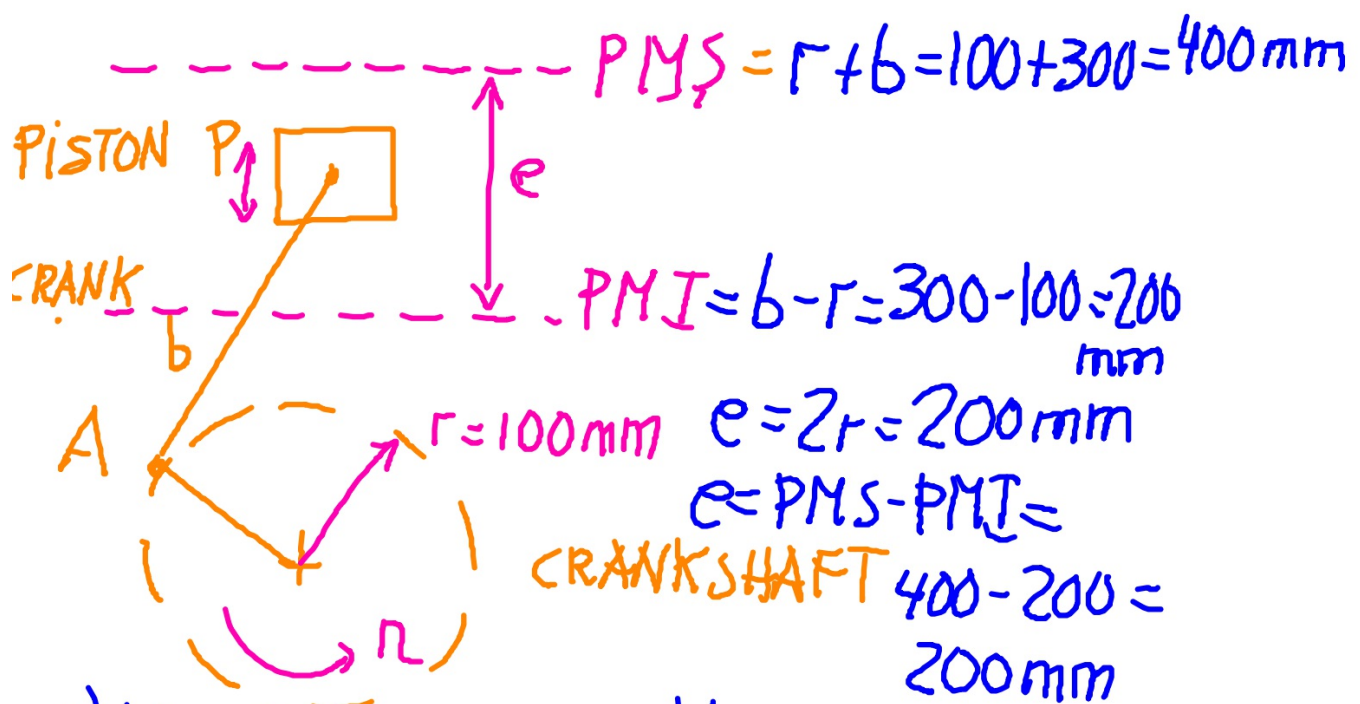 PMS = r+b=100+300=400mm
PISTON P
e
CRANK
PMI=b-r=300-100=200
mm
b
A
r=100mm
e=2r=200mm
e=PMS-PMI=
CRANKSHAFT
400-200=
200mm
n